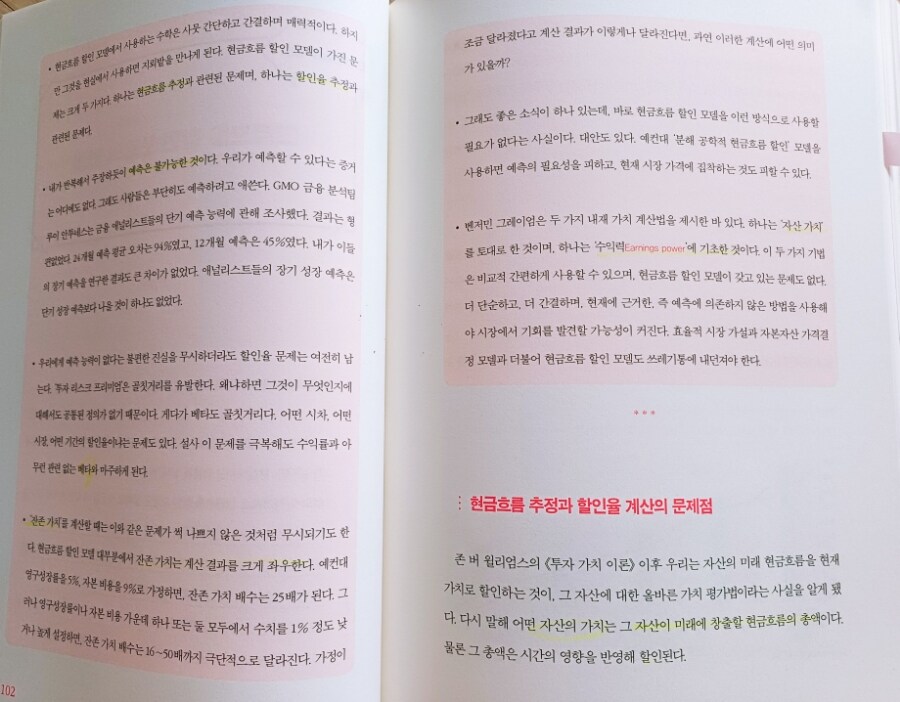 • 현금흐름 할인 모델에서 사용하는 수학은 사뭇 간단하고 간결하며 매력적이다. 하지
만 그것을 현실에서 사용하면 지뢰밭을 만나게 된다. 현금흐름 할인 모델이 가진 문
제는 크게 두 가지다. 하나는 현금흐름 추정과 관련된 문제며, 하나는 할인율 추정과
관련된 문제다.
• 내가 반복해서 주장하듯이 예측은 불가능한 것이다. 우리가 예측할 수 있다는 증거
는 어디에도 없다. 그래도 사람들은 부단히도 예측하려고 애쓴다. GMO 금융 분석팀
루이 안투네스는 금융 애널리스트들의 단기 예측 능력에 관해 조사했다. 결과는 형
편없었다. 24개월 예측 평균 오차는 94%였고, 12개월 예측은 45%였다. 내가 이들
의 장기 예측을 연구한 결과도 큰 차이가 없었다. 애널리스트들의 장기 성장 예측은
단기 성장 예측보다 나을 것이 하나도 없었다.
• 우리에게 예측 능력이 없다는 불편한 진실을 무시하더라도 할인율 문제는 여전히 남
는다. '투자 리스크 프리미엄'은 골칫거리를 유발한다. 왜냐하면 그것이 무엇인지에
대해서도 공통된 정의가 없기 때문이다. 게다가 베타도 골칫거리다. 어떤 시차, 어떤
시장, 어떤 기간의 할인율이냐는 문제도 있다. 설사 이 문제를 극복해도 수익률과 아
무런 관련 없는 베타와 마주하게 된다.
• '잔존 가치'를 계산할 때는 이와 같은 문제가 썩 나쁘지 않은 것처럼 무시되기도 한
다. 현금흐름 할인 모델 대부분에서 잔존 가치는 계산 결과를 크게 좌우한다. 예컨대
영구성장률을 5%, 자본 비용을 9%로 가정하면, 잔존 가치 배수는 25배가 된다. 그
러나 영구성장률이나 자본 비용 가운데 하나 또는 둘 모두에서 수치를 1% 정도 낮
거나 높게 설정하면, 잔존 가치 배수는 16~50배까지 극단적으로 달라진다. 가정이
102
조금 달라졌다고 계산 결과가 이렇게나 달라진다면, 과연 이러한 계산에 어떤 의미
가 있을까?
• 그래도 좋은 소식이 하나 있는데, 바로 현금흐름 할인 모델을 이런 방식으로 사용할
필요가 없다는 사실이다. 대안도 있다. 예컨대 '분해 공학적 현금흐름 할인' 모델을
사용하면 예측의 필요성을 피하고, 현재 시장 가격에 집착하는 것도 피할 수 있다.
• 벤저민 그레이엄은 두 가지 내재 가치 계산법을 제시한 바 있다. 하나는 '자산 가치'
를 토대로 한 것이며, 하나는 '수익력Earnings power'에 기초한 것이다. 이 두 가지 기법
은 비교적 간편하게 사용할 수 있으며, 현금흐름 할인 모델이 갖고 있는 문제도 없다.
더 단순하고, 더 간결하며, 현재에 근거한, 즉 예측에 의존하지 않은 방법을 사용해
야 시장에서 기회를 발견할 가능성이 커진다. 효율적 시장 가설과 자본자산 가격결
정 모델과 더불어 현금흐름 할인 모델도 쓰레기통에 내던져야 한다.
***
현금흐름 추정과 할인율 계산의 문제점
존 버 윌리엄스의 《투자 가치 이론》 이후 우리는 자산의 미래 현금흐름을 현재
가치로 할인하는 것이, 그 자산에 대한 올바른 가치 평가법이라는 사실을 알게 됐
다. 다시 말해 어떤 자산의 가치는 그 자산이 미래에 창출할 현금흐름의 총액이다.
물론 그 총액은 시간의 영향을 반영해 할인된다.